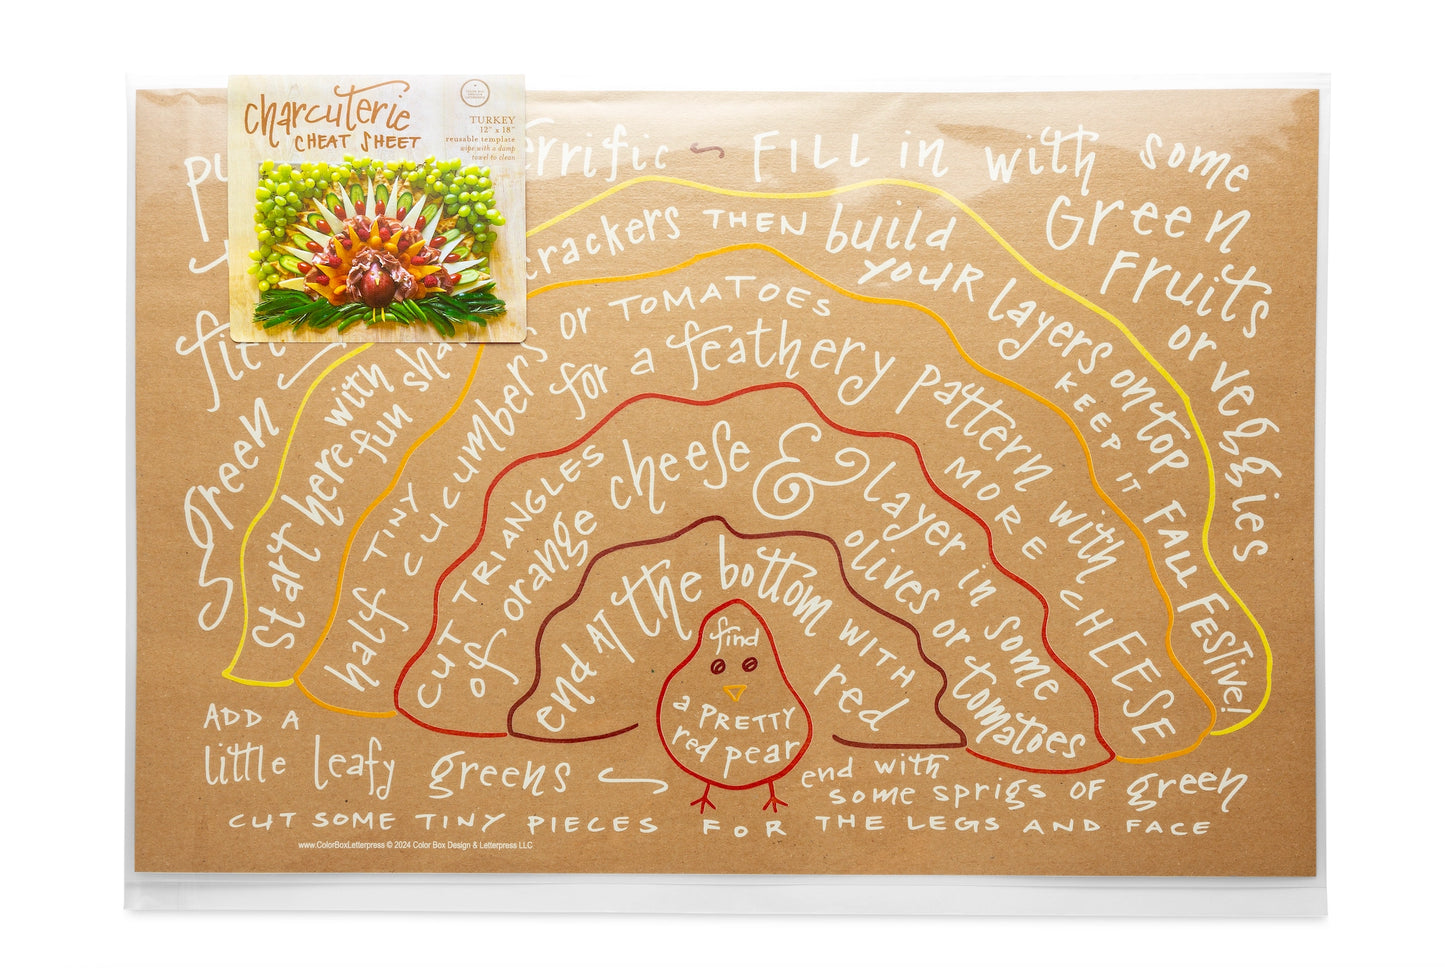 charcuterie
CHEAT SHEET
TURKEY
12" x 18"
reusable template
wipe with a damp
towel to clean
FILL in with some
Green
Fruits
or veggies
green
Start here with
fun
crackers THEN build
YOUR layers on top
KEEP IT FALL FESTIVE!
half TINY
CUCUMBERS or TOMATOES
for a feathery pattern with
MORE CHEESE
CUT TRIANGLES
of orange cheese & layer in some
olives or tomatoes
end AT the bottom WITH
red
find
a PRETTY
red pear
ADD A
little leafy greens
end with
some sprigs OF green
CUT SOME TINY PIECES FOR THE LEGS AND FACE
www.ColorBoxLetterpress © 2024 Color Box Design & Letterpress LLC